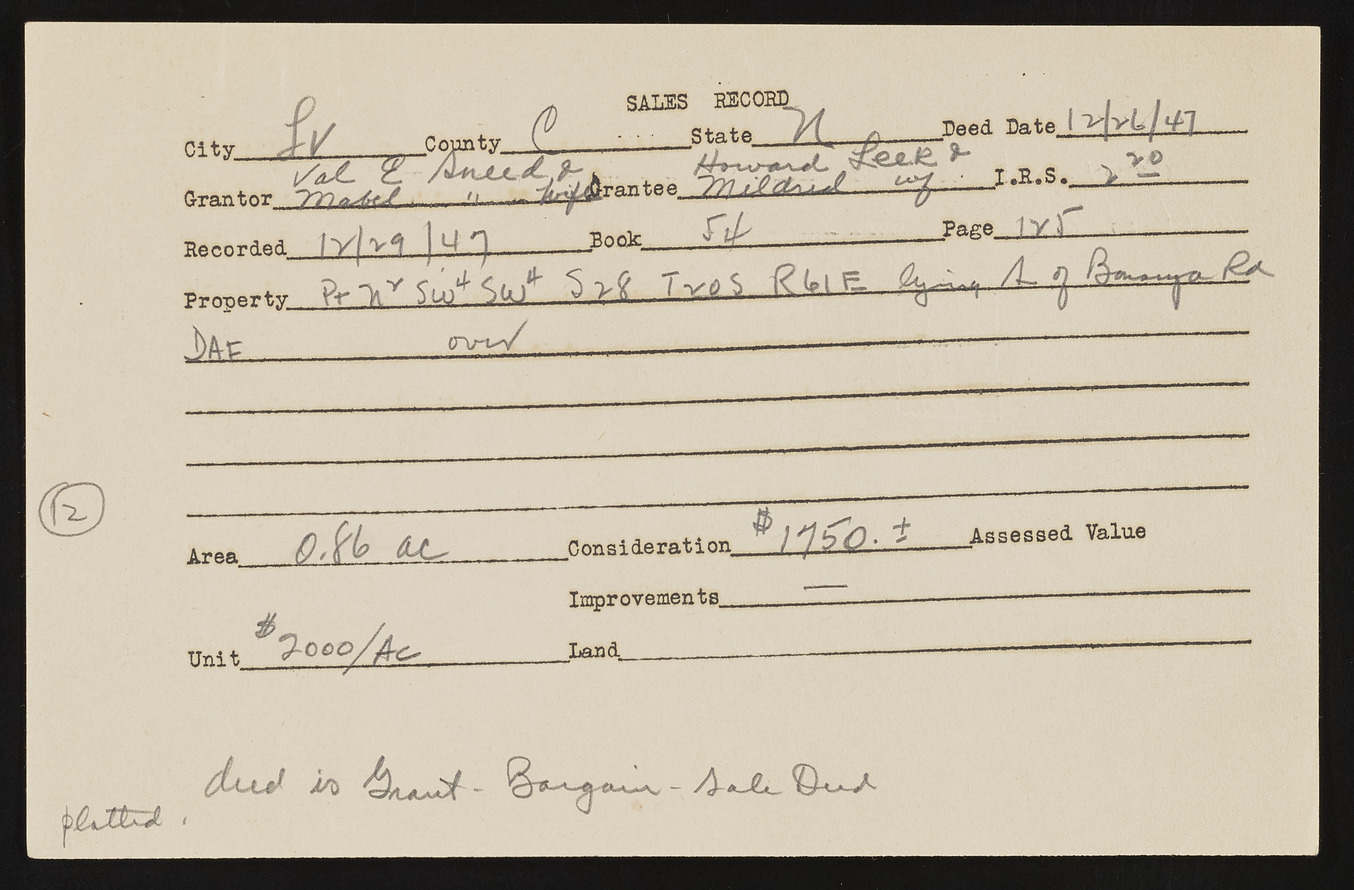 SALES RECORD
City LV County C State N Deed Date 12/26/47
Val E Sneed & Howard Leek &
Grantor Mabel " wife Grantee Mildred wf I.R.S. 2 20
Recorded 12/29/47 Book 54 Page 125
Property Pt N2 SW4 SW4 S28 T20S R61E lying S of Bonanza Rd
DAF over
12
Area 0.86 ac Consideration $1750. ± Assessed Value
Improvements —
Unit $2000/Ac Land
deed is Grant - Bargain - Sale Deed
platted.